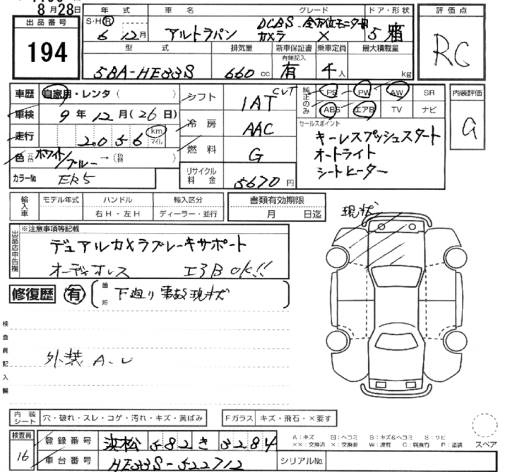 8月28日
出品番号 194
年式 車名 グレード ドア・形状 評価点
S・H・R 6 12月 アルトラパン DCBS 全方位モニター用カメラ × 5 箱 RC
型式 排気量 新車保証書 乗車定員 最大積載量
内保記入
5BA-HE33S 660 cc 有 4人 kg
車歴 自家用・レンタ( ) シフト IAT CVT 純正のみ PS PW AW SR 内装評価
ABS エアB TV ナビ G
車検 9年12月(26日) 冷房 AAC セールスポイント
走行 2056 km マイル 燃料 G キーレスプッシュスタート
色 ホワイト/ブルー→( ) オートライト
シートヒーター
カラー№ ER5 リサイクル料金 5670円
輸入車 モデル年式 ハンドル 輸入区分 書類有効期限
右H・左H ディーラー・並行 月 日迄 現状
※注意事項等記載
出品店申告欄 デュアルカメラブレーキサポート
オーディオレス エアBOK!!
修復歴 有 箇所( 下廻り事故現状
検査員記入欄
外装A-U
内装シート 穴・破れ・スレ・コゲ・汚れ・キズ・黄ばみ Fガラス キズ・飛石・×要す
検査員 16 登録番号 浜松582き3284
A:キズ U:ヘコミ B:キズ&ヘコミ S:サビ
××:交換済 X:交換要 W:波有 C:腐食有 P:塗装 スペア
車台番号 HE33S-522712 シリアル№